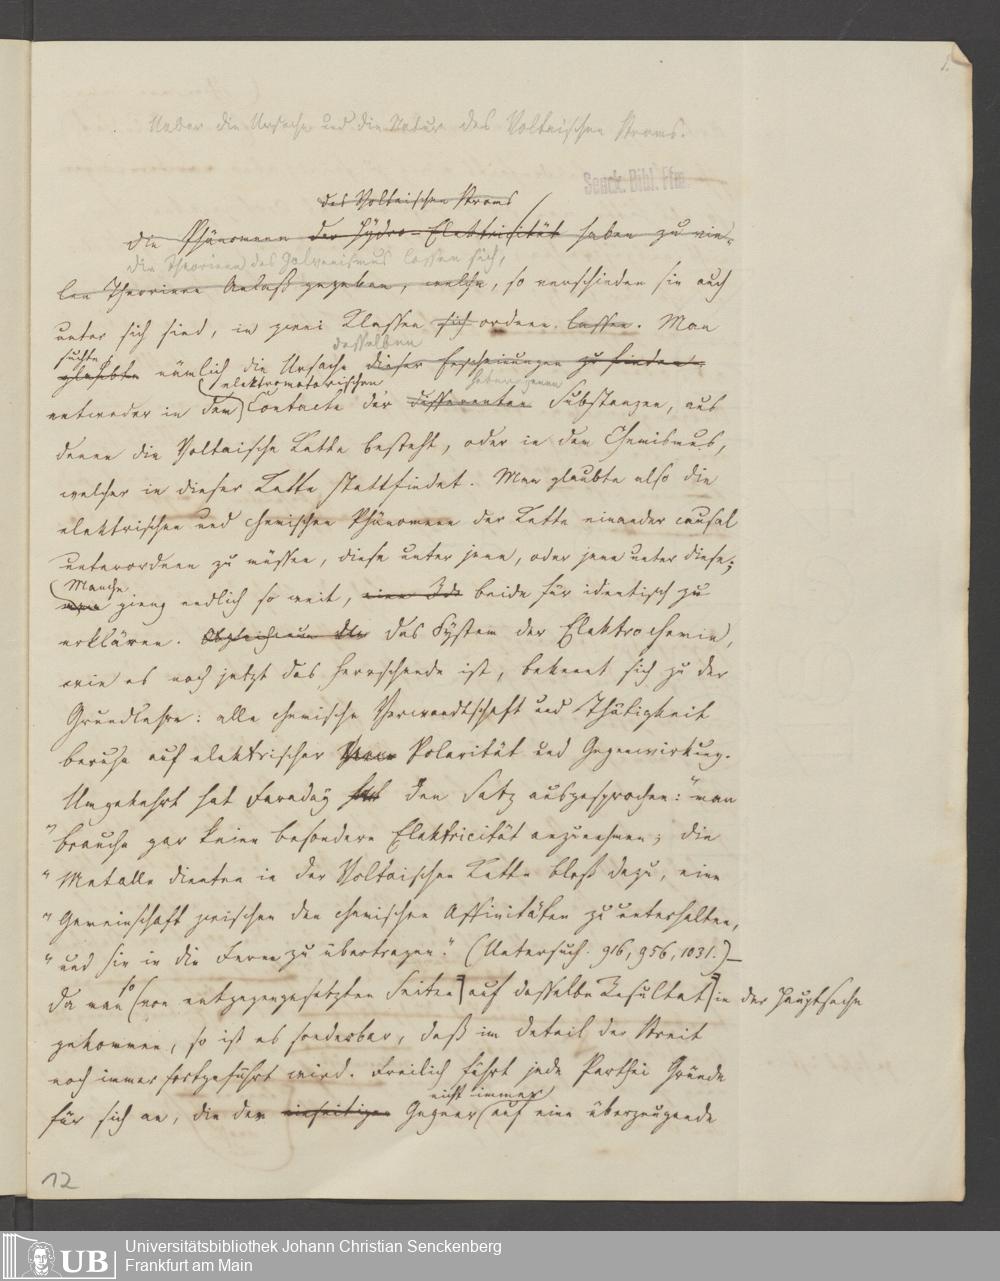 1.
Ueber die Ursache und die Natur des Voltaischen Stroms.
Senck. Bibl. Ffm.
des Voltaischen Stroms
die Phänomene der Hydro-Elektricität haben zu vie-
die Theorieen des Galvanismus lassen sich,
len Theorieen Anlaß gegeben, welche, so verschieden sie auch
unter sich sind, in zwei Klassen sich ordnen lassen. Man
suchte desselben
glaubte nämlich die Ursache dieser Erscheinungen zu finden
elektromotorischen heterogenen
entweder in dem Contacte der differenten Substanzen, aus
denen die Voltaische Kette besteht, oder in dem Chemismus,
welcher in dieser Kette stattfindet. Man glaubte also die
elektrischen und chemischen Phänomene der Kette einander causal
unterordnen zu müssen, diese unter jene, oder jene unter diese;
Manche
man gieng endlich so weit, eine Ide beide für identisch zu
erklären. das System der Elektrochemie,
wie es noch jetzt das herrschende ist, bekennt sich zu der
Grundlehre: alle chemische Verwandtschaft und Thätigkeit
beruhe auf elektrischer Polarität und Gegenwirkung.
Umgekehrt hat Faraday hat den Satz ausgesprochen: "man
" brauche gar keine besondere Elektricität anzunehmen; die
" Metalle dienten in der Voltaischen Kette bloß dazu, eine
" Gemeinschaft zwischen den chemischen Affinitäten zu unterhalten,
" und sie in die Ferne zu übertragen." (Untersuch. 916, 956, 1031.)—
so
da man von entgegengesetzten Seiten auf dasselbe Resultat in der Hauptsache
gekommen, so ist es sonderbar, daß im Detail der Streit
noch immer fortgeführt wird. Freilich führt jede Parthei Gründe
nicht immer
für sich an, die den einseitigen Gegner auf eine überzeugende
12
UB
Universitätsbibliothek Johann Christian Senckenberg
Frankfurt am Main